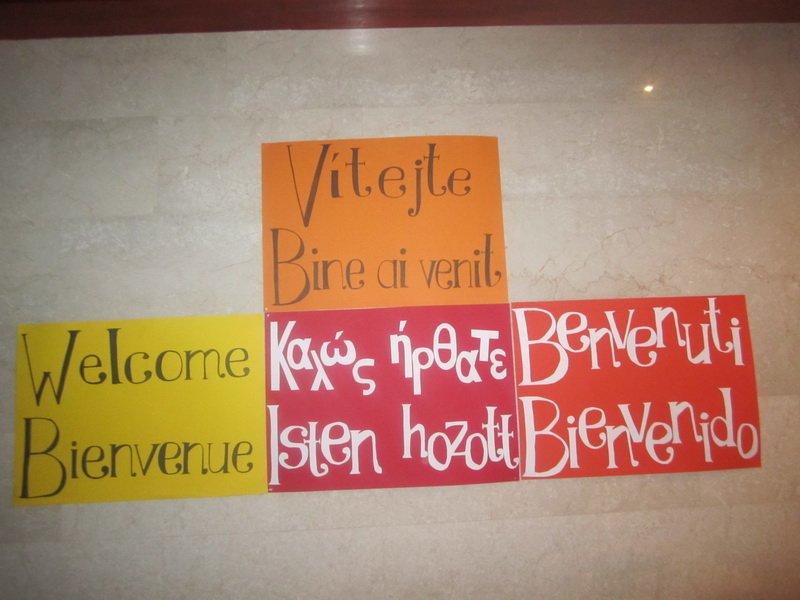 Vítejte
Bine ai venit
Welcome
Bienvenue
Καλώς ήρθατε
Isten hozott
Benvenuti
Bienvenido